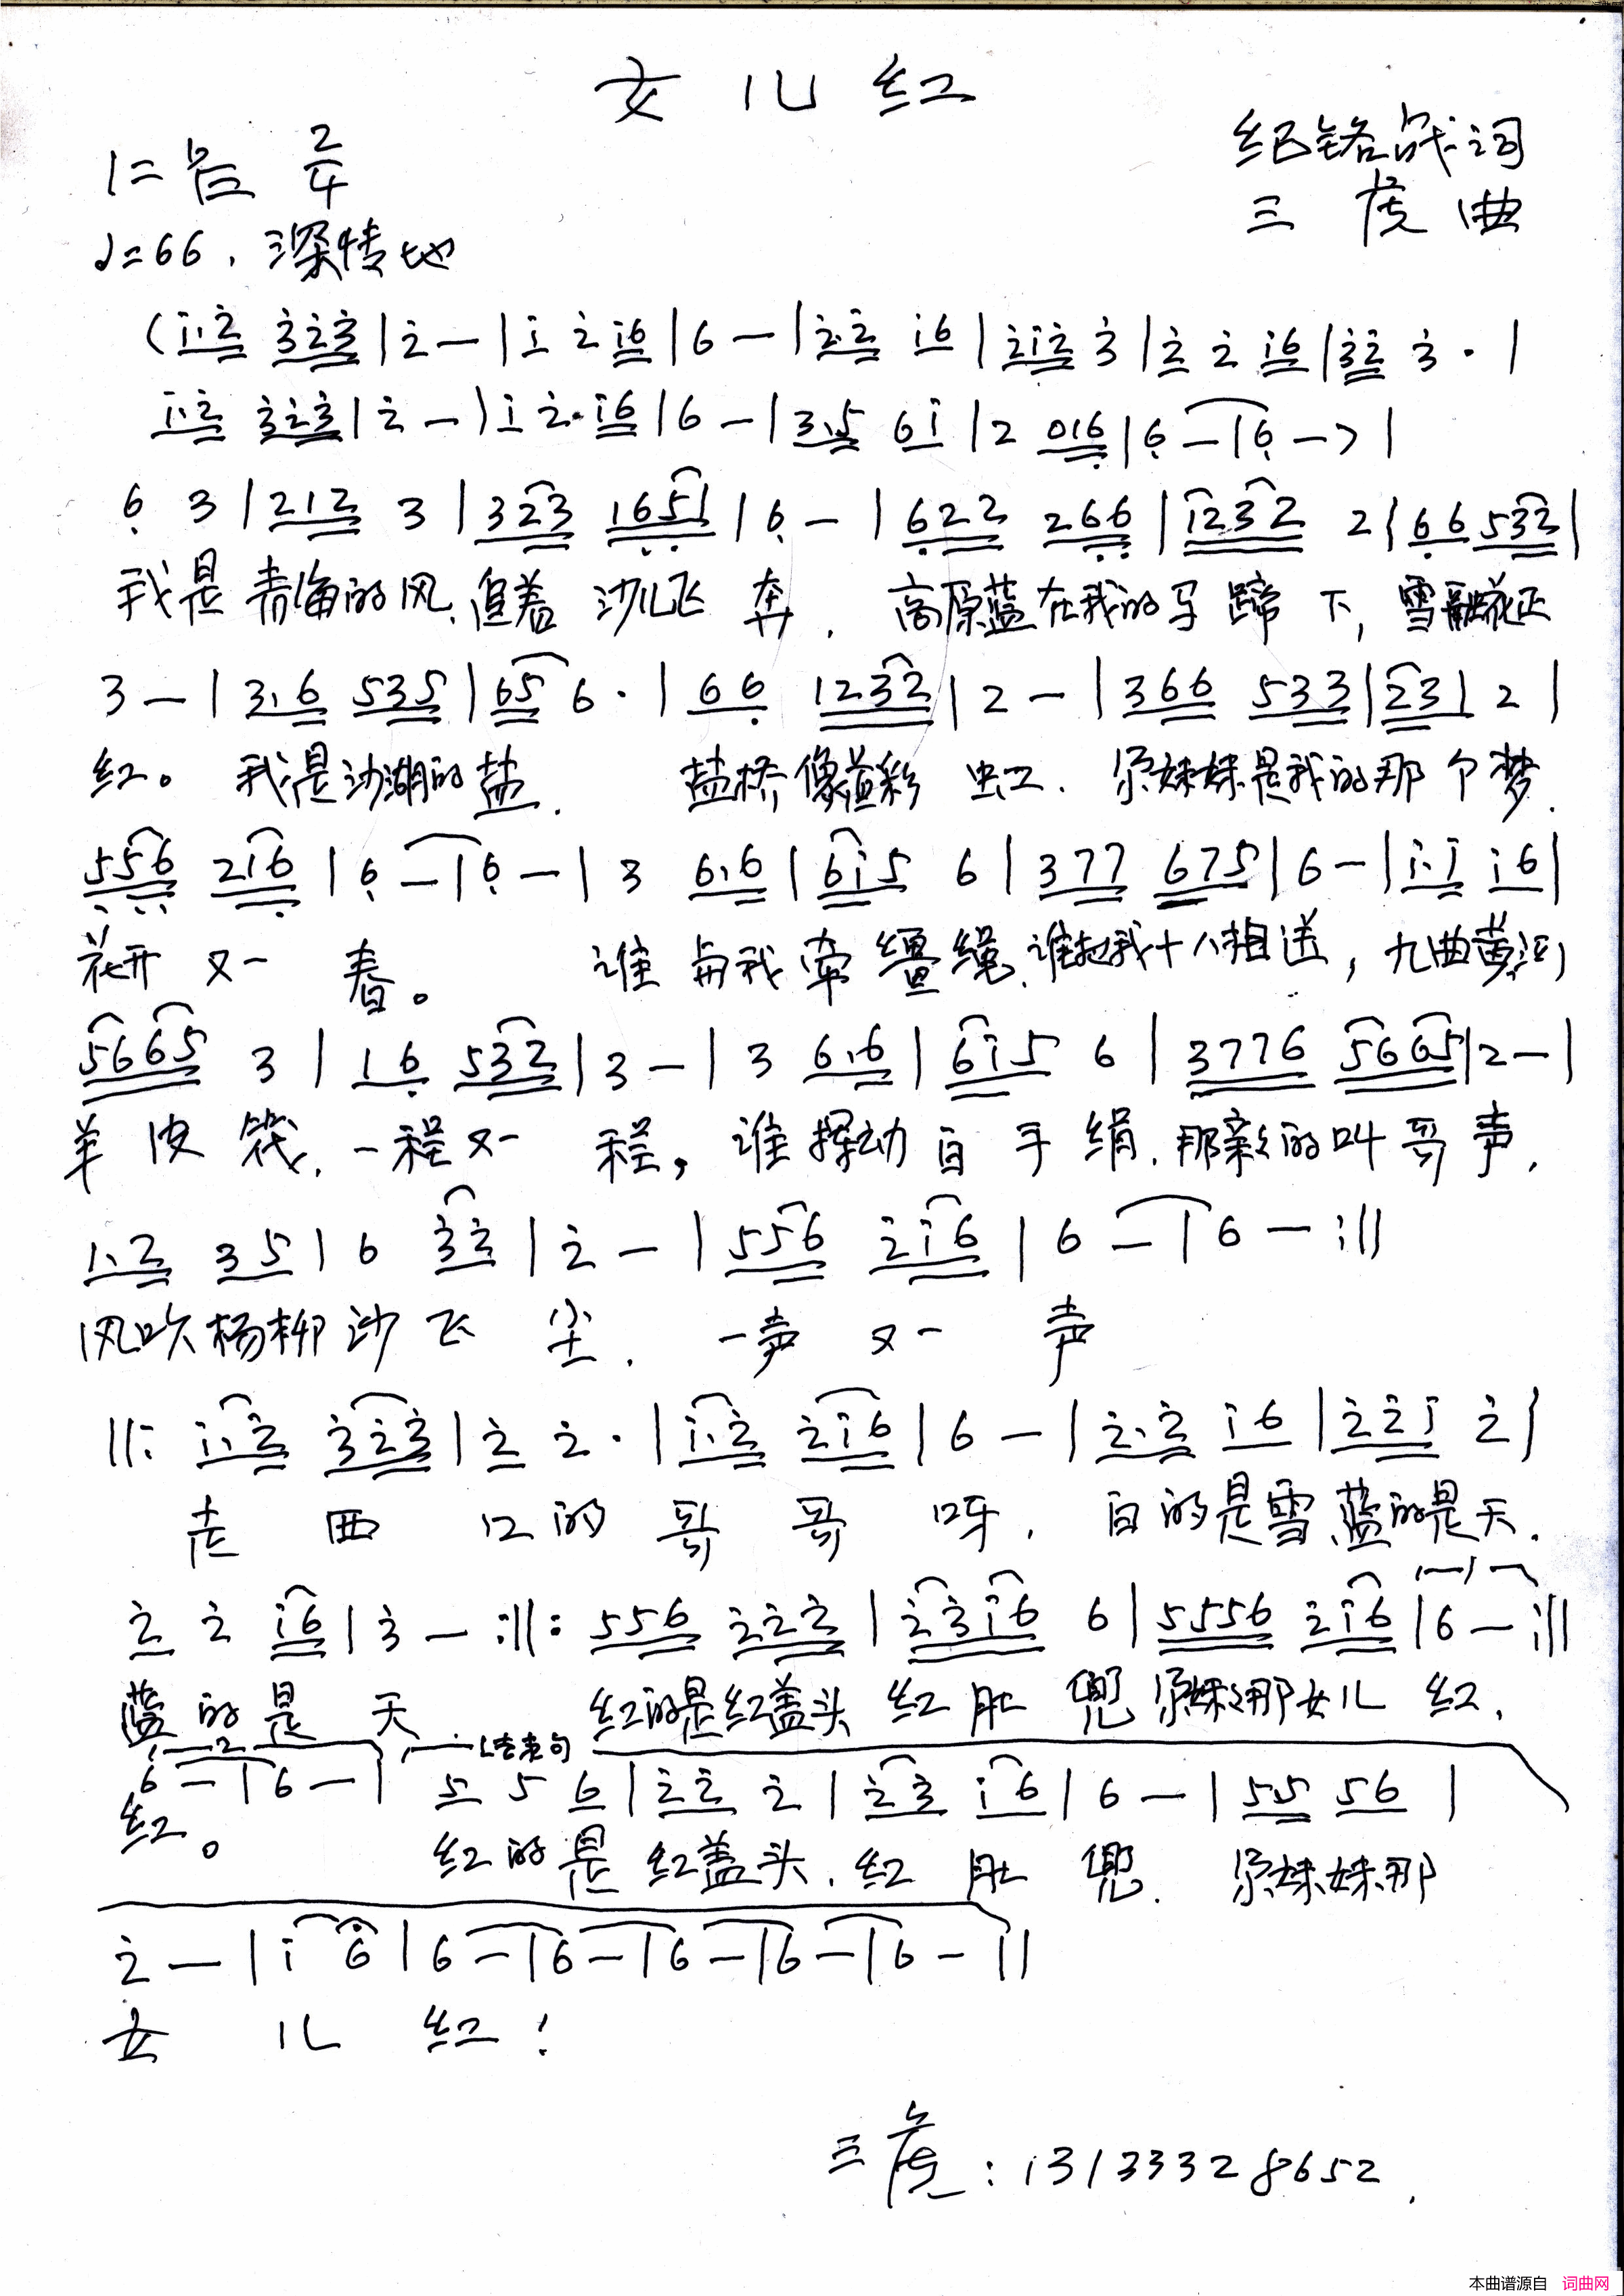 女儿红
1=♭B 2/4
纪铭战词
三虎曲
♩=66. 深情地
(i·2̇ 3̇2̇3̇|2̇ —|i 2̇ i6|6 —|2̇·2̇ i6|2̇i2̇ 3̇|2̇ 2̇ i6|3̇2̇ 3̇·|
i·2̇ 3̇2̇3̇|2̇ —|i 2̇· i6|6 —|3·5 6i|2 016|6̣ —|6̣ —)|
6̣ 3|212 3|323 165̣1|6̣ —|6̣22 26̣6̣|1232 2|6̣6 532|
我是青海的风,追着沙儿飞奔. 高原蓝在我的马蹄下,雪融花正
3 —|3·6 535|65 6·|66̣ 1232|2 —|366 533|231 2|
红。我是沙湖的盐. 盐桥像道彩虹. 尕妹妹是我的那个梦.
5̣5̣6̣ 216̣|6̣ —|6̣ —|3 6·6|6i5 6|377 675|6 —|i·i i6|
花开又一春。谁与我牵缰绳.谁起我十八相送,九曲黄河
5665 3|16̣ 532|3 —|3 6·6|6i5 6|3776 5665|2 —|
羊皮筏.一程又一程,谁挥动白手绢.那亲亲的叫哥声.
1·2 35|6 3̇2̇|2̇ —|556 2̇i6|6 —|6 — :||
风吹杨柳沙飞尘. 一声又一声
||: i·2̇ 3̇2̇3̇|2̇ 2̇·|i·2̇ 2̇i6|6 —|2̇·2̇ i6|2̇2̇i 2̇|
走西口的哥哥呀. 白的是雪蓝的是天.
2̇ 2̇ i6|3̇ — :||: 556 2̇2̇2̇|2̇3̇i6 6|5556 2̇i6|6 — :||
蓝的是天 红的是红盖头红肚兜尕妹妹那女儿红.
2 结束句
6 —|6 —| 5 5 6|2̇2̇ 2̇|2̇3̇ i6|6 —|55 56|
红。红的是红盖头.红肚兜. 尕妹妹那
2̇ —|i 6|6 —|6 —|6 —|6 —|6 —||
女儿红!
三虎:13133328652.
本曲谱源自 词曲网